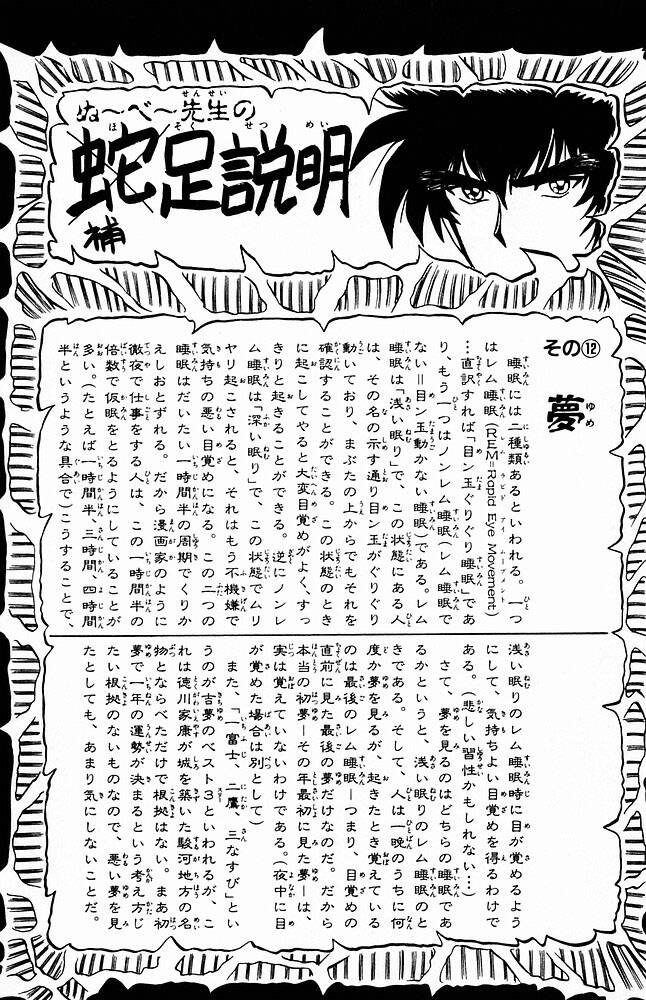 ぬ～べ～先生の
蛇足説明
補
その⑫
夢
睡眠には二種類あるといわれる。一つ
はレム睡眠(REM=Rapid Eye Movement)
…直訳すれば「目ン玉ぐりぐり睡眠」であ
り、もう一つはノンレム睡眠(レム睡眠で
ない=目ン玉動かない睡眠)である。レム
睡眠は「浅い眠り」で、この状態にある人
は、その名の示す通り目ン玉がぐりぐり
動いており、まぶたの上からでもそれを
確認することができる。この状態のとき
に起こしてやると大変目覚めがよく、すっ
きりと起きることができる。逆にノンレ
ム睡眠は「深い眠り」で、この状態でムリ
ヤリ起こされると、それはもう不機嫌で
気持ちの悪い目覚めになる。この二つの
睡眠はだいたい一時間半の周期でくりか
えしおとずれる。だから漫画家のように
徹夜で仕事をする人は、この一時間半の
倍数で仮眠をとるようにしていることが
多い。たとえば一時間半、三時間、四時間
半というような具合で)こうすることで、
浅い眠りのレム睡眠時に目が覚めるよう
にして、気持ちよい目覚めを得るわけで
ある。(悲しい習性かもしれない…)
さて、夢を見るのはどちらの睡眠であ
るかというと、浅い眠りのレム睡眠のと
きである。そして、人は一晩のうちに何
度か夢を見るが、起きたとき覚えている
のは最後のレム睡眠―つまり、目覚めの
直前に見た最後の夢だけなのだ。だから
本当の初夢―その年最初に見た夢―は、
実は覚えていないわけである。(夜中に目
が覚めた場合は別として)
また、「一富士、二鷹、三なすび」とい
うのが吉夢のベスト3といわれるが、こ
れは徳川家康が城を築いた駿河地方の名
物とならべただけで根拠はない。まあ初
夢で一年の運勢が決まるという考え方じ
たい根拠のないものなので、悪い夢を見
たとしても、あまり気にしないことだ。